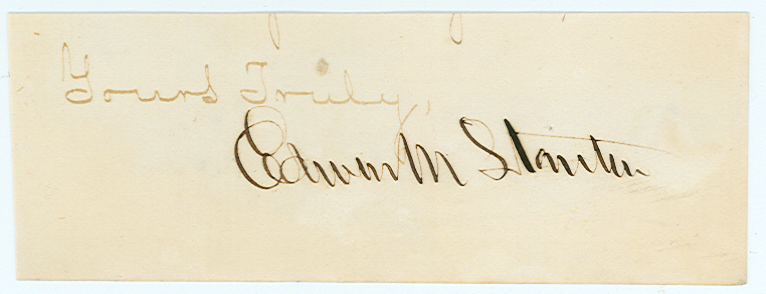 Yours Truly,
Edwin M Stanton